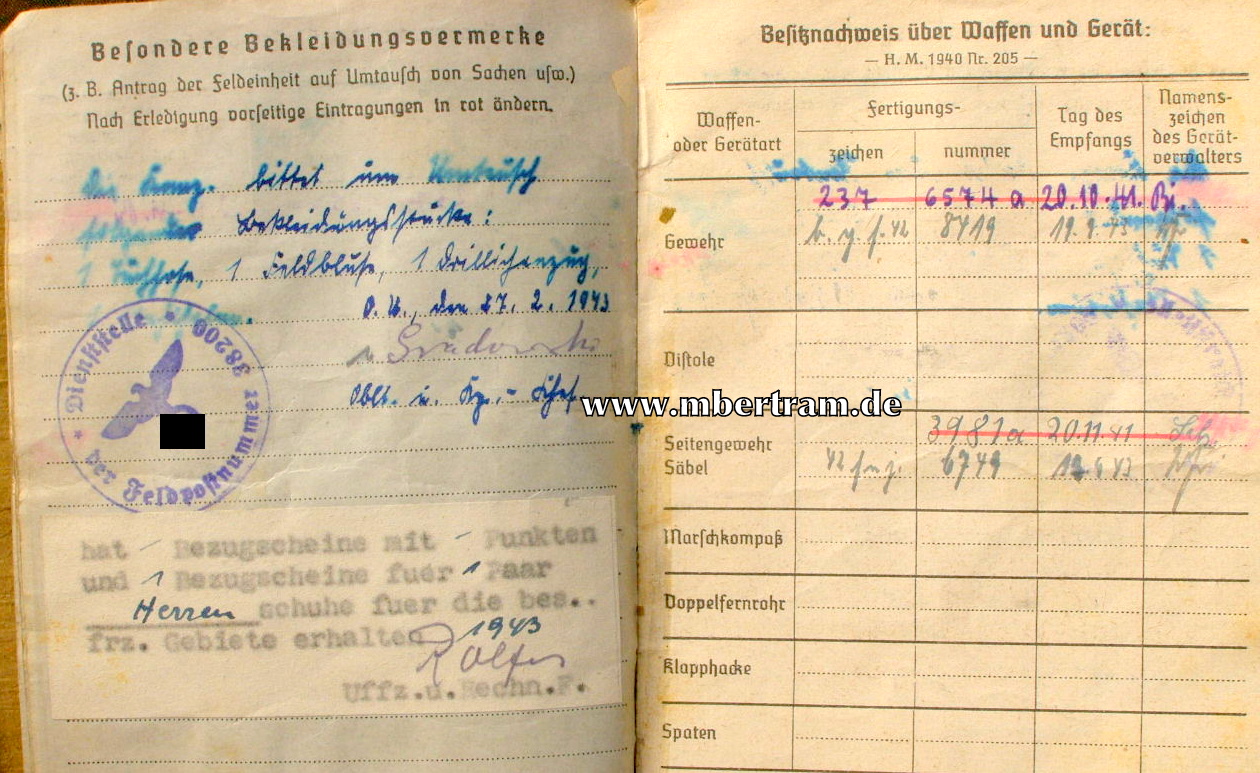 Besondere Bekleidungsvermerke
(z. B. Antrag der Feldeinheit auf Umtausch von Sachen usw.)
Nach Erledigung vorseitige Eintragungen in rot ändern.
Die Komp. bittet um Umtausch
folgender Bekleidungsstücke:
1 Tuchhose, 1 Feldbluse, 1 Drillichanzug,
O. U., den 27. 2. 1943
Oblt. u. Kp.-Chef
Dienststelle der Feldpostnummer 38200
hat - Bezugscheine mit - Punkten
und 1 Bezugscheine fuer 1 Paar
Herren schuhe fuer die bes..
frz. Gebiete erhalten 1943
Rolfes
Uffz.u.Rechn.F.
www.mbertram.de
Besitznachweis über Waffen und Gerät:
— H. M. 1940 Nr. 205 —
Waffen- oder Gerätart
Fertigungs-
zeichen
nummer
Tag des Empfangs
Namens-zeichen des Gerät-verwalters
237 6574 a 20.10.41. Bi.
Gewehr
8419
Pistole
3981a 20.11.41
Seitengewehr
Säbel
6749
Marschkompaß
Doppelfernrohr
Klapphacke
Spaten